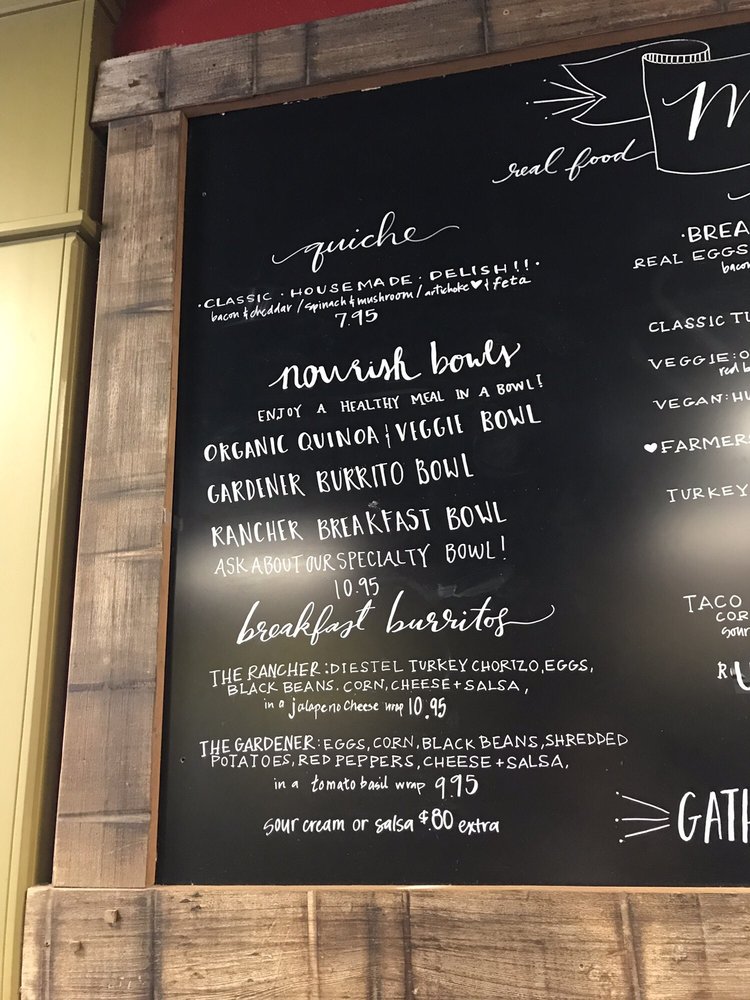 real food
quiche
·CLASSIC · HOUSEMADE · DELISH!!·
bacon & cheddar / spinach & mushroom / artichoke ♥ & feta
7.95
nourish bowls
ENJOY A HEALTHY MEAL IN A BOWL!
ORGANIC QUINOA & VEGGIE BOWL
GARDENER BURRITO BOWL
RANCHER BREAKFAST BOWL
ASK ABOUT OUR SPECIALTY BOWL!
10.95
breakfast burritos
THE RANCHER: DIESTEL TURKEY CHORIZO, EGGS,
BLACK BEANS. CORN, CHEESE + SALSA,
in a jalapeno cheese wrap 10.95
THE GARDENER: EGGS, CORN, BLACK BEANS, SHREDDED
POTATOES, RED PEPPERS, CHEESE + SALSA,
in a tomato basil wrap 9.95
sour cream or salsa $.80 extra
REAL EGGS
bacon
CLASSIC
VEGGIE:
red
VEGAN:
♥FARMERS
TURKEY
TACO
COR
sour